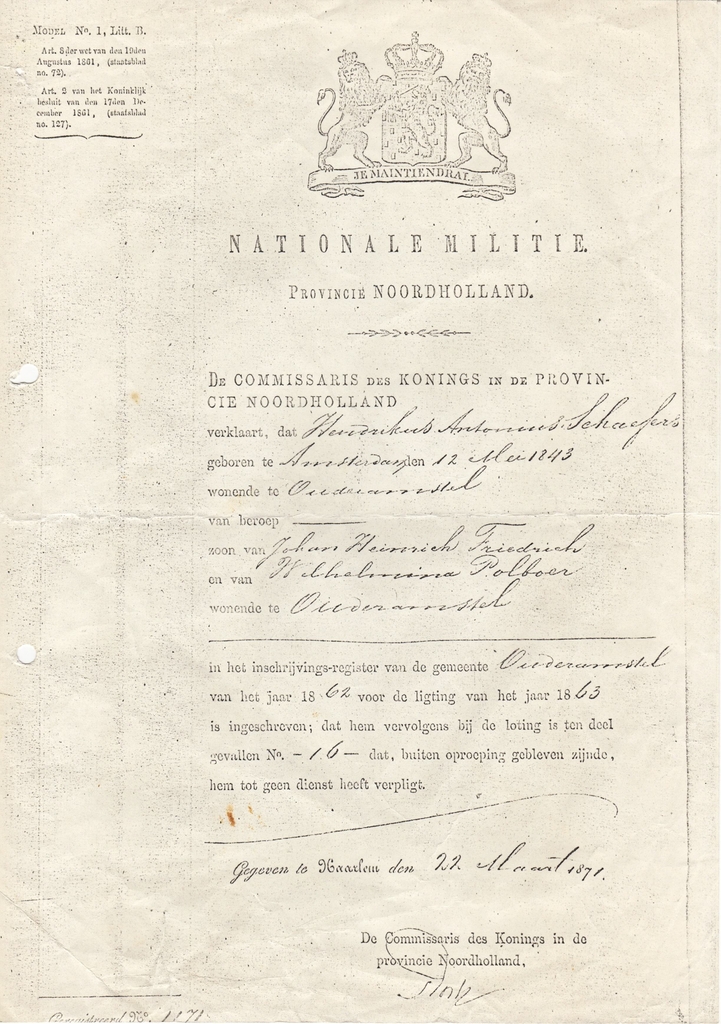 MODEL No. 1, Litt. B.
Art. 8 der wet van den 19den
Augustus 1861, (staatsblad
no. 72).
Art. 2 van het Koninklijk
besluit van den 17den De-
cember 1861, (staatsblad
no. 127).
JE MAINTIENDRAI.
NATIONALE MILITIE.
PROVINCIE NOORDHOLLAND.
DE COMMISSARIS DES KONINGS IN DE PROVIN-
CIE NOORDHOLLAND
verklaart, dat Hendrikus Antonius Schaefers
geboren te Amsterdam den 12 Mei 1843
wonende te Ouderamstel
van beroep ———
zoon van Johan Heinrich Friedrich
en van Wilhelmina Polboer
wonende te Ouderamstel
in het inschrijvings-register van de gemeente Ouderamstel
van het jaar 1862 voor de ligting van het jaar 1863
is ingeschreven; dat hem vervolgens bij de loting is ten deel
gevallen No. – 16 – dat, buiten oproeping gebleven zijnde,
hem tot geen dienst heeft verpligt.
Gegeven te Haarlem den 22 Maart 1871.
De Commissaris des Konings in de
provincie Noordholland,
Geregistreerd No.